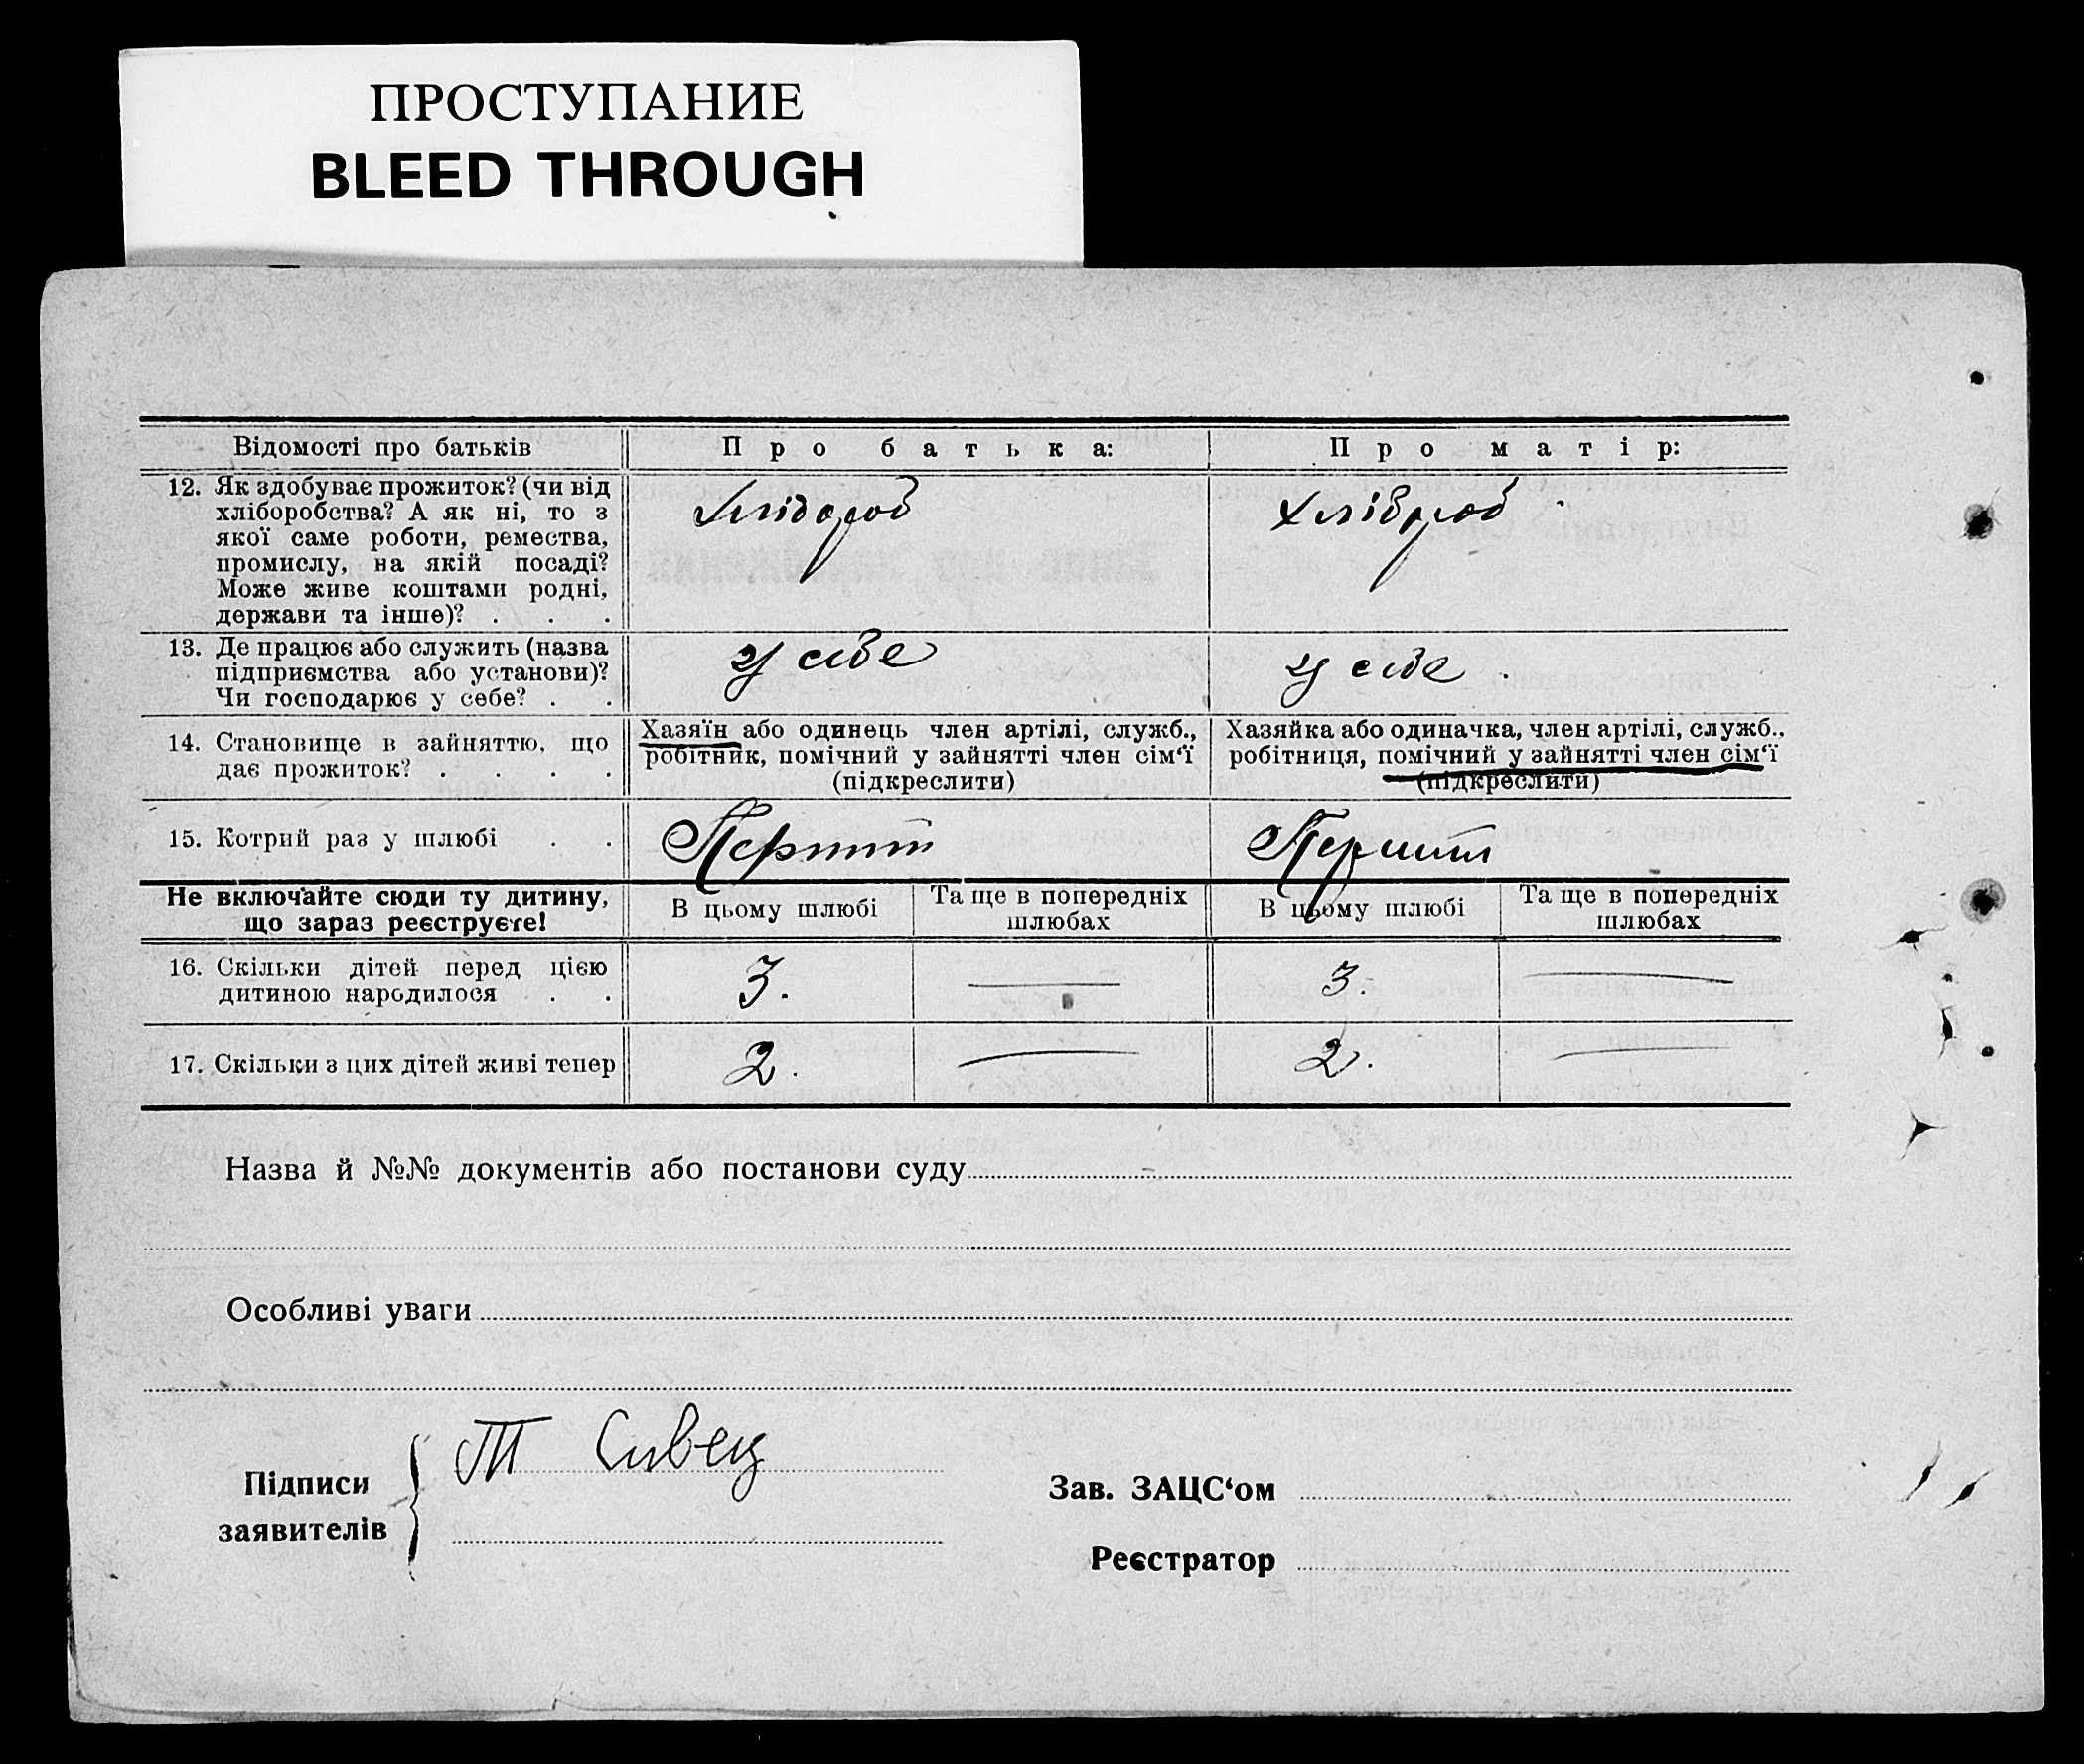 ПРОСТУПАНИЕ
BLEED THROUGH
Відомості про батьків
Про батька:
Про матір:
12. Як здобуває прожиток? (чи від
хліборобства? А як ні, то з
якої саме роботи, ремества,
промислу, на якій посаді?
Може живе коштами родні,
держави та інше)? . . .
Хлібороб
Хлібороб
13. Де працює або служить (назва
підприємства або установи)?
Чи господарює у себе? . .
у себе
у себе
14. Становище в зайняттю, що
дає прожиток? . . . .
Хазяїн або одинець член артілі, служб.,
робітник, помічний у зайнятті член сім‘ї
(підкреслити)
Хазяйка або одиначка, член артілі, служб.,
робітниця, помічний у зайнятті член сім‘ї
(підкреслити)
15. Котрий раз у шлюбі . .
Перший
Перший
Не включайте сюди ту дитину,
що зараз реєструєте!
В цьому шлюбі
Та ще в попередніх
шлюбах
В цьому шлюбі
Та ще в попередніх
шлюбах
16. Скільки дітей перед цією
дитиною народилося . .
3.
—
3.
—
17. Скільки з цих дітей живі тепер
2.
—
2.
—
Назва й №№ документів або постанови суду
Особливі уваги
Підписи
заявителів
Т Сивец
Зав. ЗАЦС‘ом
Реєстратор